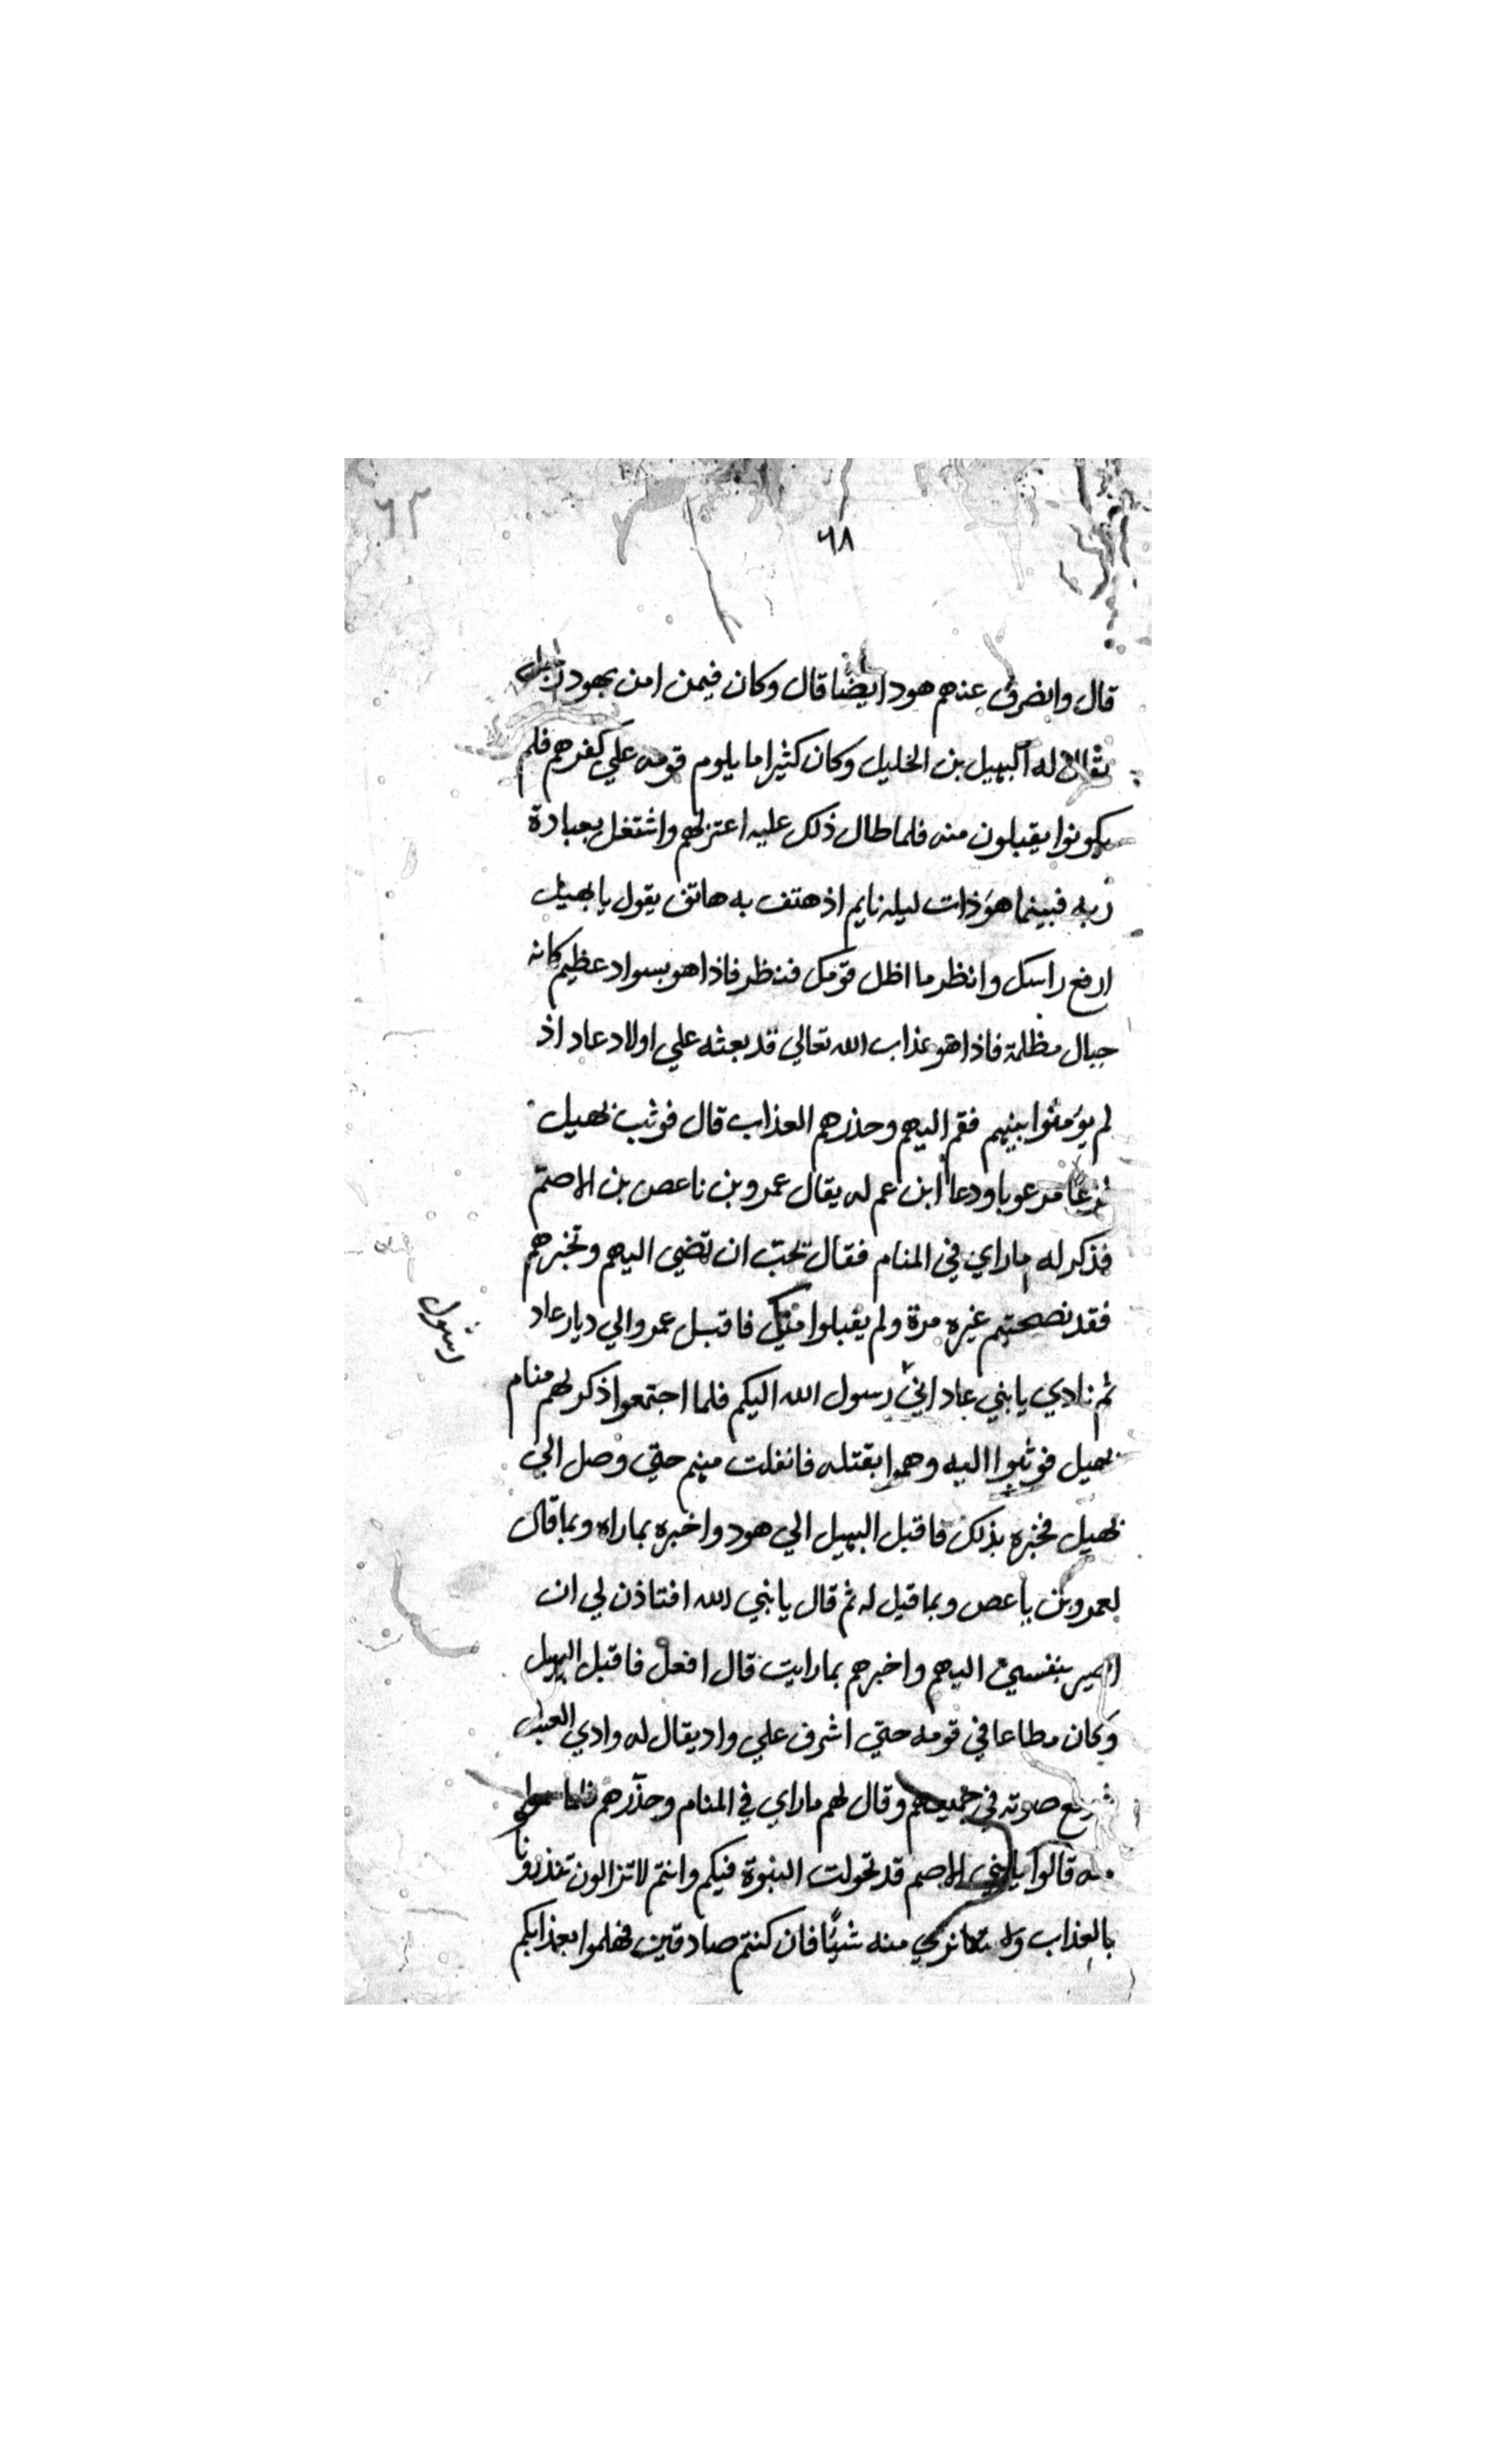 ٦٢
٦٨
قال وانصرف عنهم هود ايضا قال وكان فيمن امن بهود رجل
يقال له البهيل بن الخليل وكان كثيرا ما يلوم قومه علي كفرهم فلم
يكونوا يقبلون منه فلما طال ذلك عليه اعتزلهم واشتغل بعبادة
ربه فبينما هو ذات ليله نايم اذ هتف به هاتف يقول يا بهيل
ارفع راسك وانظر ما اظل قومك فنظر فاذا هو بسواد عظيم كانه
جبال مظلمة فاذا هو عذاب الله تعالي قد بعثه علي اولاد عاد اذ
لم يؤمنوا بنبيهم فقم اليهم وحذرهم العذاب قال فوثب بهيل
فزعا مرعوبا ودعا ابن عم له يقال عمرو بن ناعص بن الاصم
فذكر له ما راي في المنام فقال تحب ان تمضي اليهم وتخبرهم
فقد نصحتهم غيره مرة ولم يقبلوا منك فاقبل عمرو الي ديار عاد
رسول
ثم نادي يا بني عاد اني رسول الله اليكم فلما اجتمعوا ذكر لهم منام
بهيل فوثبوا اليه وهموا بقتله فانفلت منهم حتي وصل الي
بهيل فخبره بذلك فاقبل البهيل الي هود واخبره بماراه وبما قال
لعمرو بن باعص وبما قيل له ثم قال يا نبي الله افتاذن لي ان
اصير بنفسي اليهم واخبرهم بما رايت قال افعل فاقبل البهيل
وكان مطاعا في قومه حتي اشرف علي واد يقال له وادي
صوته في جميعهم وقال لهم ما راي في المنام وحذرهم فلما
قالوا يا بني الاصم قد تحولت النبوة فيكم وانتم لا تزالون تنذرونا
بالعذاب ولا نري منه شيئا فان كنتم صادقين فهلموا بعذابكم